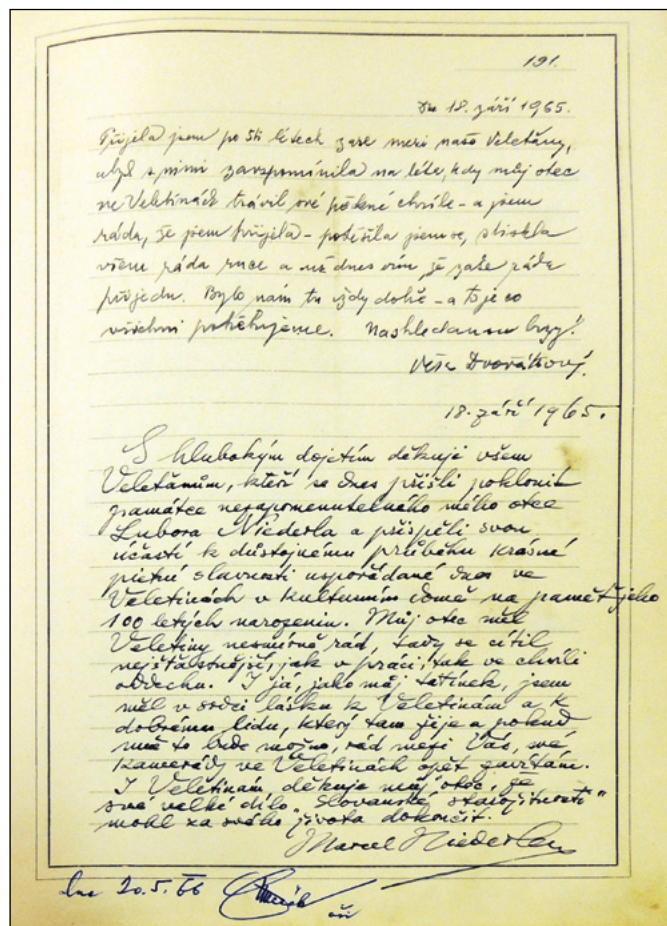 191.
Dne 18. září 1965.
Přijela jsem po 5ti létech zase mezi naše Veleťany,
abych s nimi zavzpomínila na léta, kdy můj otec
ve Veletinách trávil své pěkné chvíle – a jsem
ráda, že jsem přijela – potěšila jsem se, stiskla
všem ráda ruce a už dnes vím, že zase ráda
přijedu. Bylo nám tu vždy dobře – a to je co
všichni potřebujeme. Nashledanou brzy!
Věra Dvořáková.
18. září 1965.
S hlubokým dojetím děkuji všem
Veleťanům, kteří se dnes přišli poklonit
památce nezapomenutelného mého otce
Lubora Niederla a přispěli svou
účastí k důstojnému průběhu krásné
pietní slavnosti uspořádané dnes ve
Veletinách v Kulturním domě na paměť jeho
100 letých narozenin. Můj otec měl
Veletiny nesmírně rád, tady se cítil
nejšťastnější, jak v práci, tak ve chvíli
oddechu. I já, jako můj tatínek, jsem
měl v srdci lásku k Veletinám a k
dobrému lidu, který tam žije a pokud
mně to bude možno, rád mezi Vás, své
kamarády ve Veletinách opět zavítám.
I Veletinám děkuje můj otec, že
své velké dílo „Slovanské starožitnosti“
mohl za svého života dokončit.
Marcel Niederle
dne 20. 5. 66